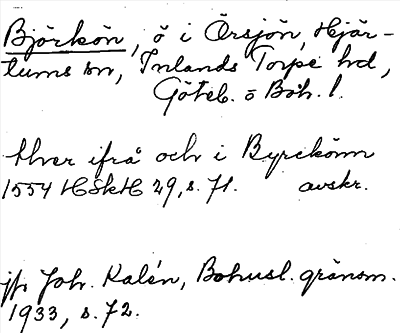 Björkön, ö i Örsjön, Hjär-
tums sn, Inlands Torpe hd,
Göteb. o Boh. l.
thver ifrå och i Byrckönn
1554 HSkH 29, s. 71. avskr.
jfr Joh. Kalén, Bohusl. gränsm.
1933, s. 72.